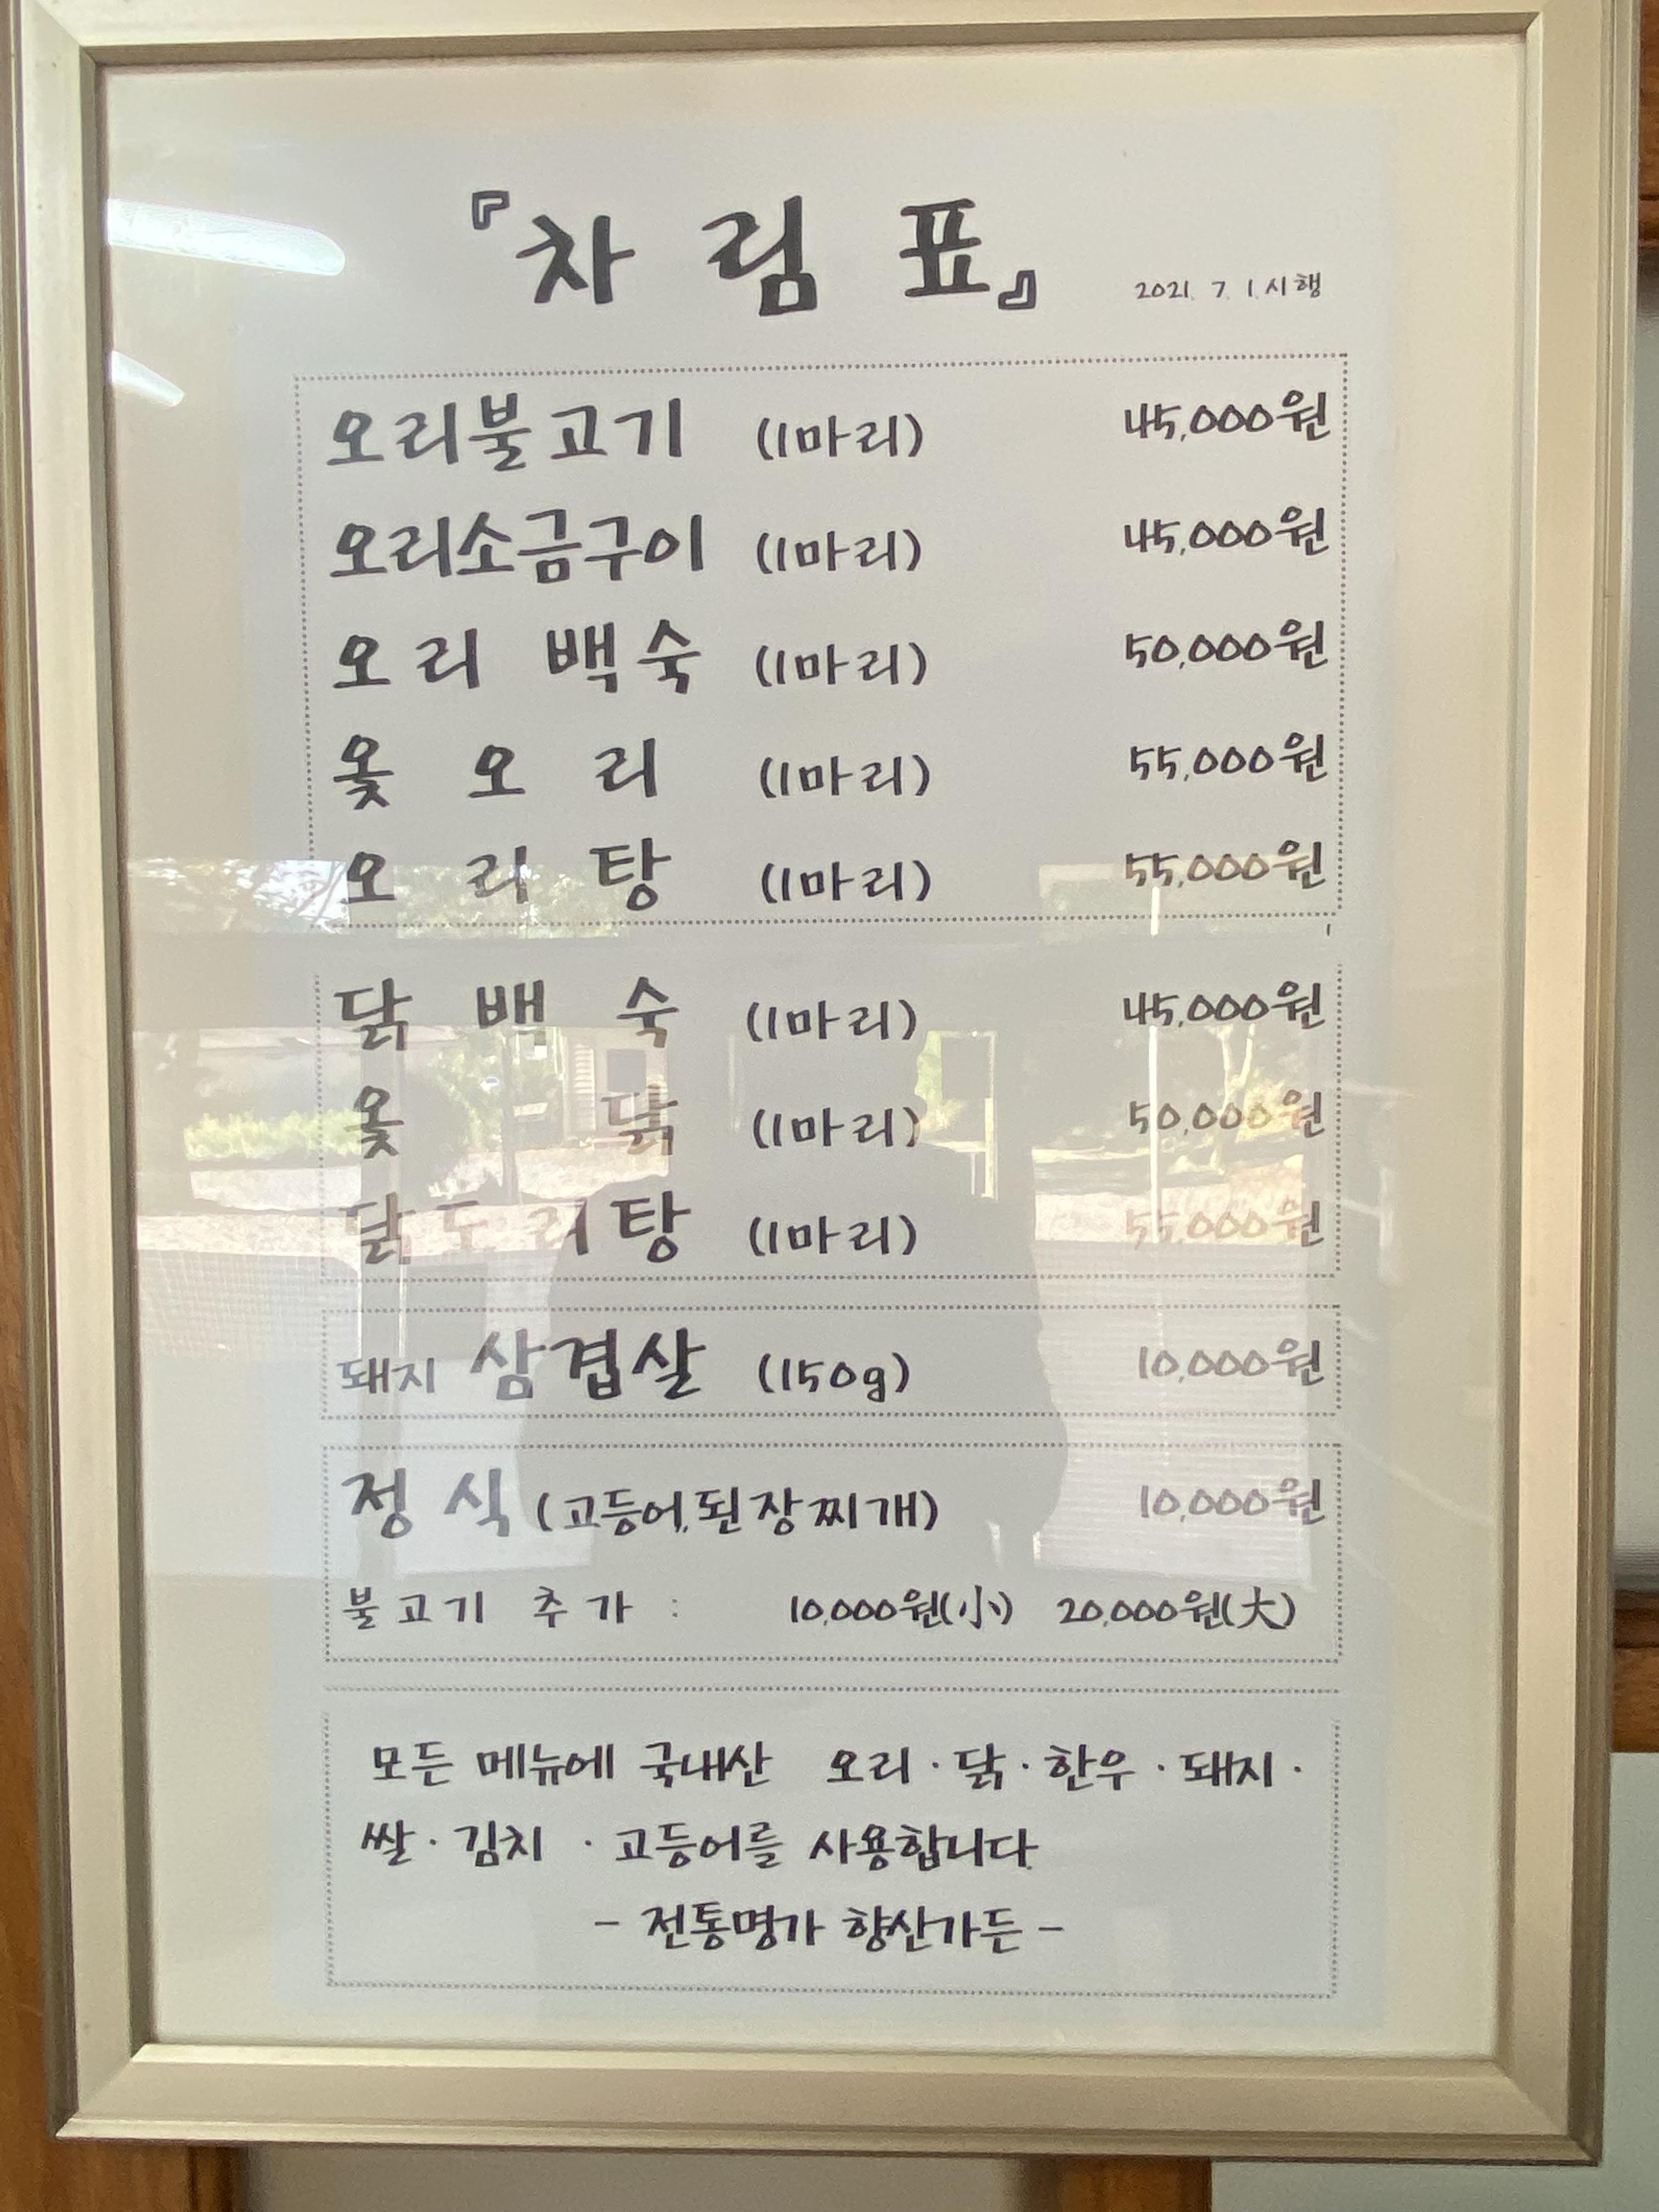 『차림표』 2021. 7. 1. 시행
오리불고기 (1마리) 45,000원
오리소금구이 (1마리) 45,000원
오리 백숙 (1마리) 50,000원
옻 오 리 (1마리) 55,000원
오 리 탕 (1마리) 55,000원
닭 백 숙 (1마리) 45,000원
옻 닭 (1마리) 50,000원
닭도리탕 (1마리) 55,000원
돼지 삼겹살 (150g) 10,000원
정 식 (고등어, 된장찌개) 10,000원
불고기 추가 : 10,000원(小) 20,000원(大)
모든 메뉴에 국내산 오리 · 닭 · 한우 · 돼지 ·
쌀 · 김치 · 고등어를 사용합니다.
- 전통명가 향산가든 -